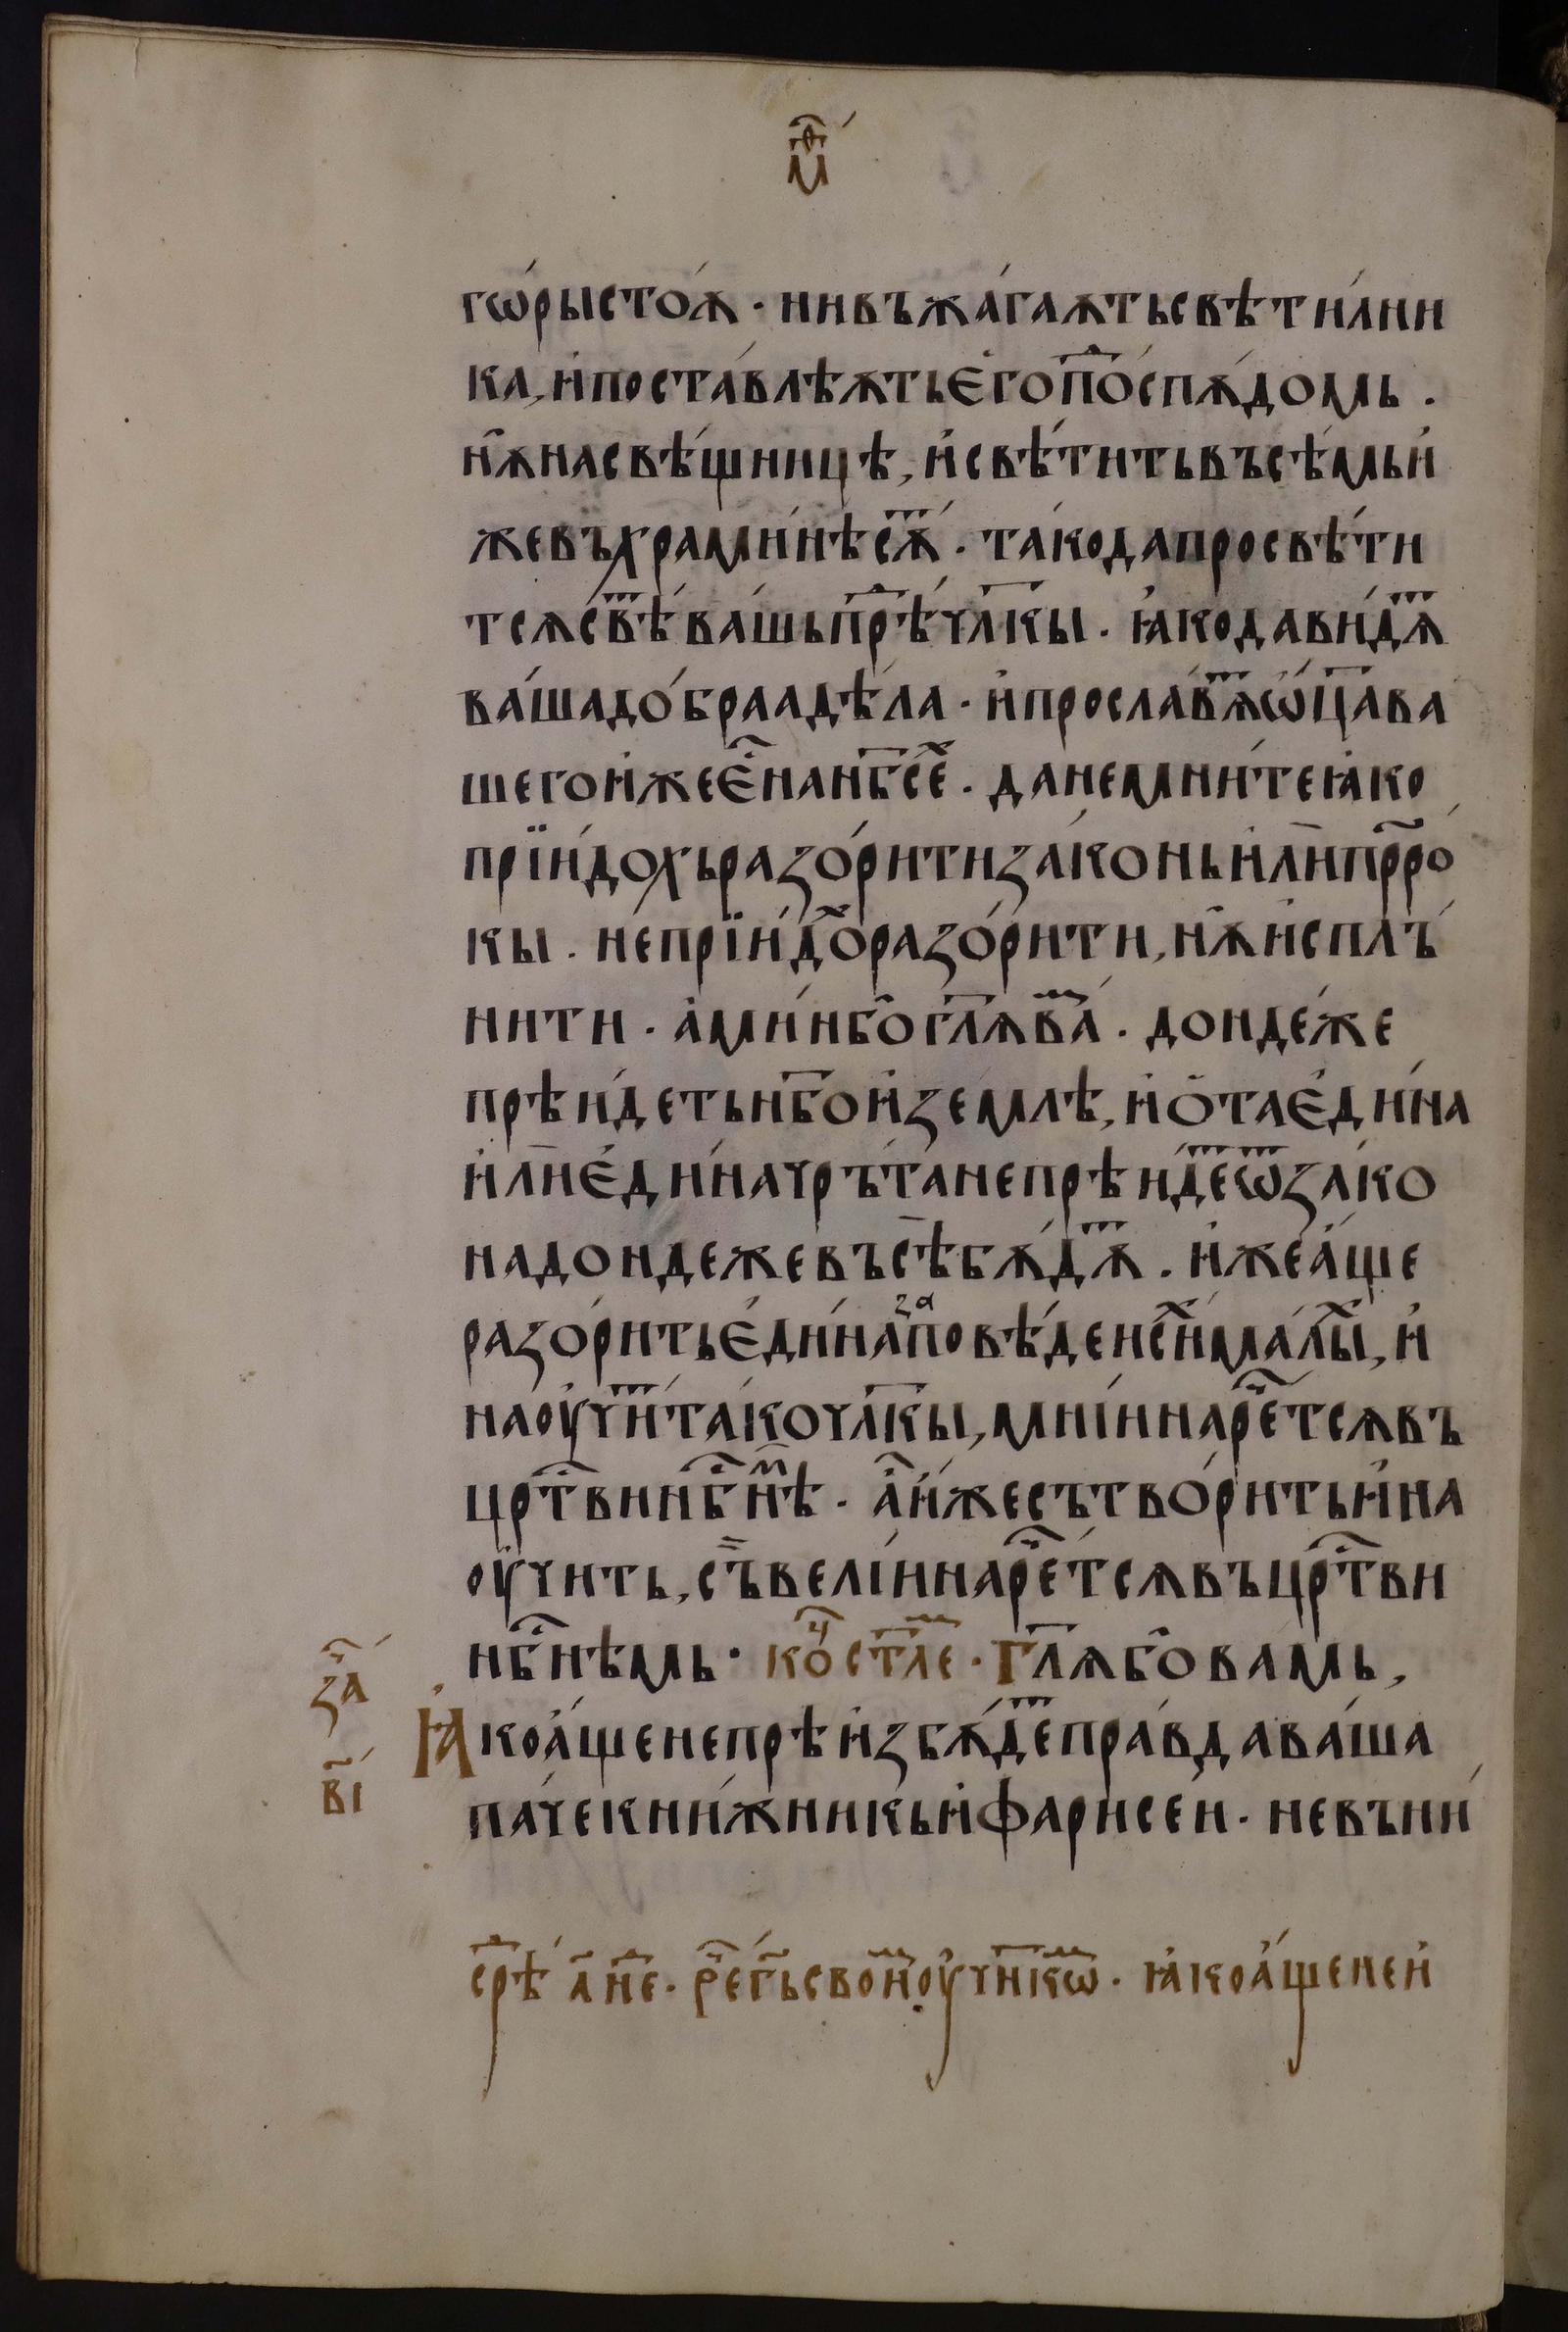 м҃ѳ
гѡ́рыстоѫ́ · нивъжа́гаѫтьсвѣти́лни
ка, и҆поста́влѣѫтье҆гопⷪ҇спѫ́домь ·
нѫ̑насвѣ́щницѣ, и҆свѣ́титьвъсѣ́мьи҆
жевъхрами́нѣсѫⷮ҇ · та́кодапросвѣ́ти
тсѧсвⷮѣ́ва́шьпрⷣѣ́чл҃кы · ꙗ҆кодави́дѧⷮ
ва́шадо́браадѣ́ла · и҆просла́вѧⷮѡ҆ц҃ава
шегои҆жее҆ⷭ҇нан҃бсеⷯ · данемни́теꙗ҆ко
прїи́дохьразо́ритиза́коньи҆лі҃ипррⷪ҇о
кы · непрїи́доⷯразо́рити, нѫ̑и҆сплъ́
нити · а҆ми́нбо̑гл҃ѧваⷨ · донде́же
прѣи́детьн҃бои҆землѣ, и҆ѻ҆тае҆ди́на
и҆л҃ие҆ди́начръта́непрѣи́деⷮѿза́ко
надондежевъсѣ̀бѫ́дѫⷮ · и҆жеа҆́ще
разо́ритье҆ди́нѫзаповѣ́денсиⷯма́лыⷯ, и҆
наоу҆чиⷮта́кочл҃кы, мні́инарⷱ҇е́тсѧвъ
црⷭ҇твинбⷭ҇нѣⷨ · а҆ⷥи҆́жесътво́ритьи҆на
оу҆чить, съ̀велі́инарⷱ҇е́тсѧвъцрⷭ҇тви
нбⷭ҇нѣмь · коⷰ҇ стл҃еⷨ · Гл҃ѧбо̑вамь,
за҃ Ꙗ҆коа҆́щенепрѣи҆збѫ́деⷮпра́вдава́ша
в҃і па́чекни́жникьи҆фарисе́и · невъни́
срⷣѣ́ а҃ нⷣе · рⷱ҇ег҃ьсвоиⷨоу҆чн҃кѡⷨ · ꙗ҆коа҆́щенеи҆